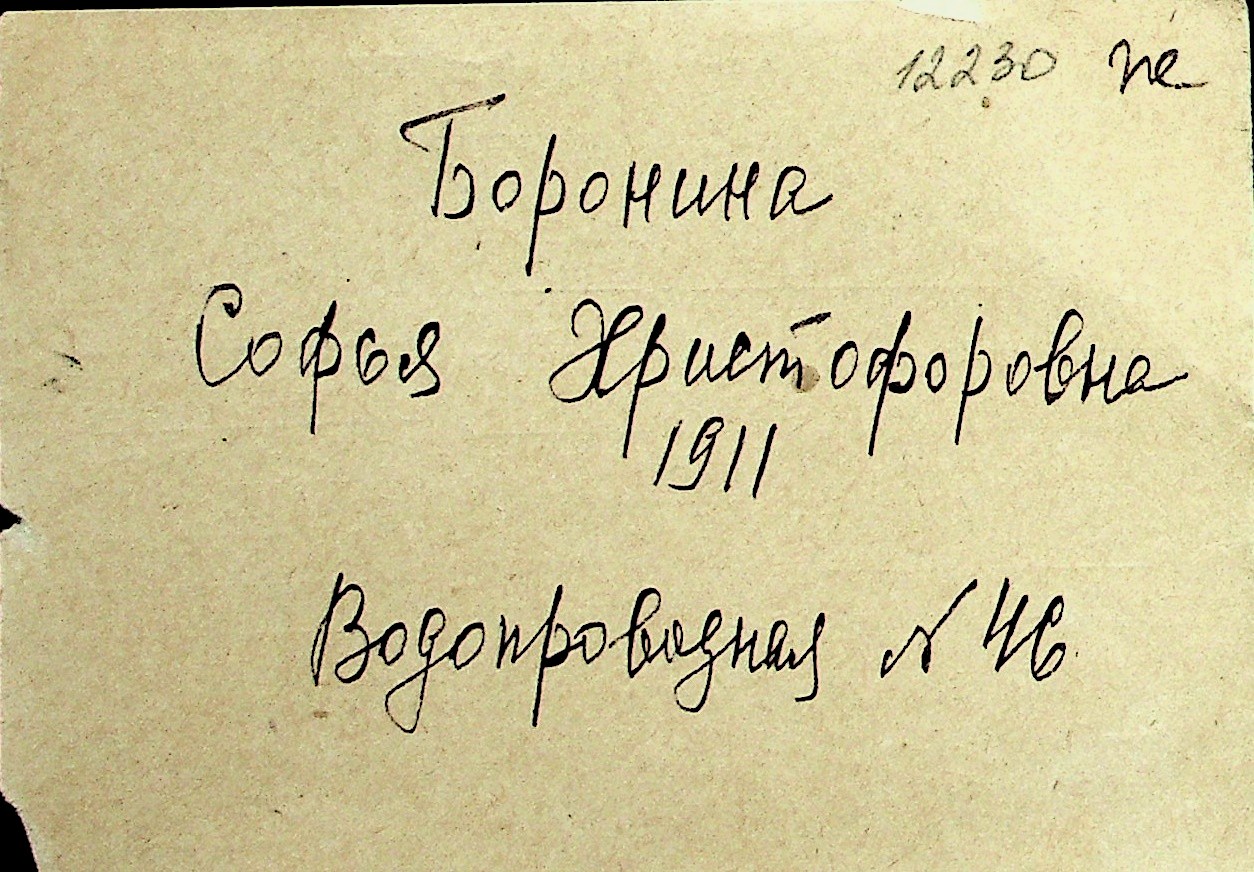 12230 пе
Боронина
Софья Христофоровна
1911
Водопроводная N 46